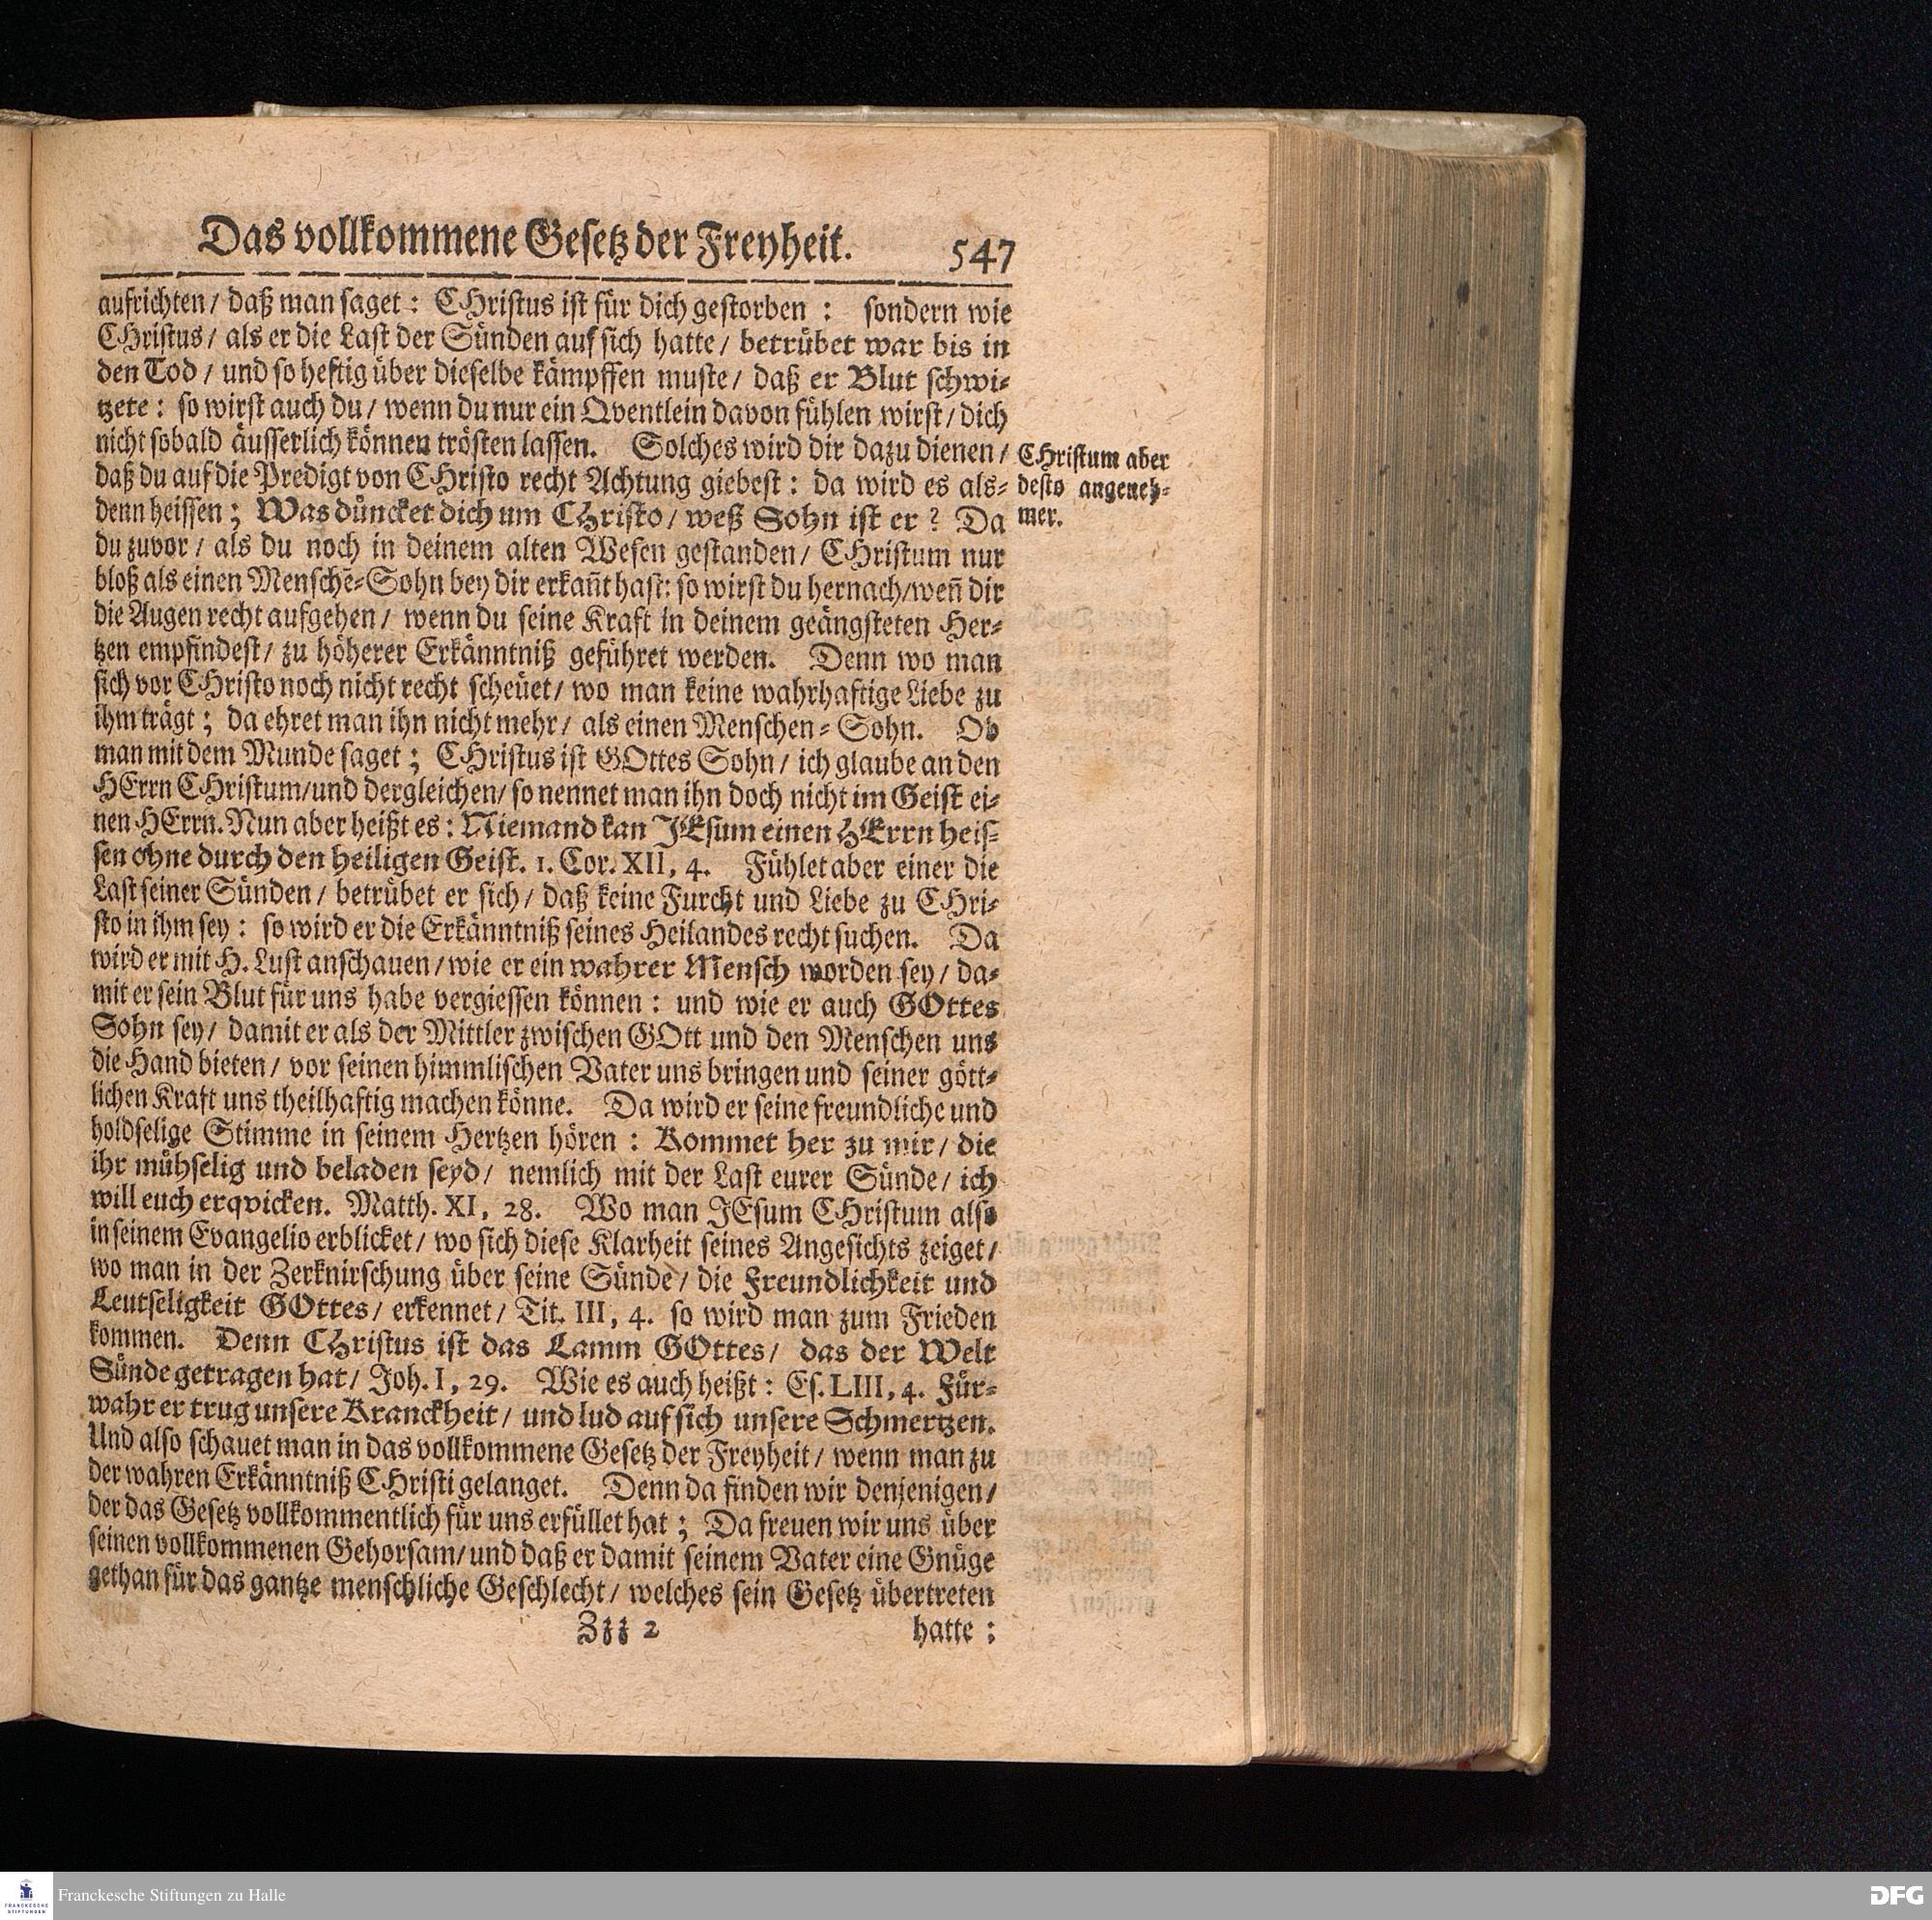 Das vollkommene Gesetz der Freyheit. 547
aufrichten/ daß man saget: CHristus ist für dich gestorben : sondern wie
CHristus/ als er die Last der Sünden auf sich hatte/ betrübet war bis in
den Tod/ und so heftig über dieselbe kämpffen muste/ daß er Blut schwi-
tzete: so wirst auch du/ wenn du nur ein Qventlein davon fühlen wirst/ dich
nicht sobald äusserlich können trösten lassen. Solches wird dir dazu dienen/
daß du auf die Predigt von CHristo recht Achtung giebest: da wird es als-
denn heissen; Was düncket dich um CHristo/ weß Sohn ist er? Da
du zuvor/ als du noch in deinem alten Wesen gestanden/ CHristum nur
bloß als einen Menschē-Sohn bey dir erkañt hast: so wirst du hernach/ weñ dir
die Augen recht aufgehen/ wenn du seine Kraft in deinem geängsteten Her-
tzen empfindest/ zu höherer Erkänntniß geführet werden. Denn wo man
sich vor CHristo noch nicht recht scheüet/ wo man keine wahrhaftige Liebe zu
ihm trägt; da ehret man ihn nicht mehr/ als einen Menschen-Sohn. Ob
man mit dem Munde saget; CHristus ist GOttes Sohn/ ich glaube an den
HErrn CHristum/ und dergleichen/ so nennet man ihn doch nicht im Geist ei-
nen HErrn. Nun aber heißt es: Niemand kan JEsum einen HErrn heis-
sen ohne durch den heiligen Geist. 1. Cor. XII, 4. Fühlet aber einer die
Last seiner Sünden/ betrübet er sich/ daß keine Furcht und Liebe zu CHri-
sto in ihm sey: so wird er die Erkänntniß seines Heilandes recht suchen. Da
wird er mit H. Lust anschauen/ wie er ein wahrer Mensch worden sey/ da-
mit er sein Blut für uns habe vergiessen können: und wie er auch GOttes
Sohn sey/ damit er als der Mittler zwischen GOtt und den Menschen uns
die Hand bieten/ vor seinen himmlischen Vater uns bringen und seiner gött-
lichen Kraft uns theilhaftig machen könne. Da wird er seine freundliche und
holdselige Stimme in seinem Hertzen hören: Kommet her zu mir/ die
ihr mühselig und beladen seyd/ nemlich mit der Last eurer Sünde/ ich
will euch erqvicken. Matth. XI, 28. Wo man JEsum CHristum also
in seinem Evangelio erblicket/ wo sich diese Klarheit seines Angesichts zeiget/
wo man in der Zerknirschung über seine Sünde/ die Freundlichkeit und
Leutseligkeit GOttes/ erkennet/ Tit. III, 4. so wird man zum Frieden
kommen. Denn CHristus ist das Lamm GOttes/ das der Welt
Sünde getragen hat/ Joh. I, 29. Wie es auch heißt: Es. LIII, 4. Für-
wahr er trug unsere Kranckheit/ und lud auf sich unsere Schmertzen.
Und also schauet man in das vollkommene Gesetz der Freyheit/ wenn man zu
der wahren Erkänntniß CHristi gelanget. Denn da finden wir denjenigen/
der das Gesetz vollkommentlich für uns erfüllet hat; Da freuen wir uns über
seinen vollkommenen Gehorsam/ und daß er damit seinem Vater eine Gnüge
gethan für das gantze menschliche Geschlecht/ welches sein Gesetz übertreten
Zzz 2 hatte:
CHristum aber
desto angeneh-
mer.
Franckesche Stiftungen zu Halle
FRANCKESCHE
STIFTUNGEN
DFG